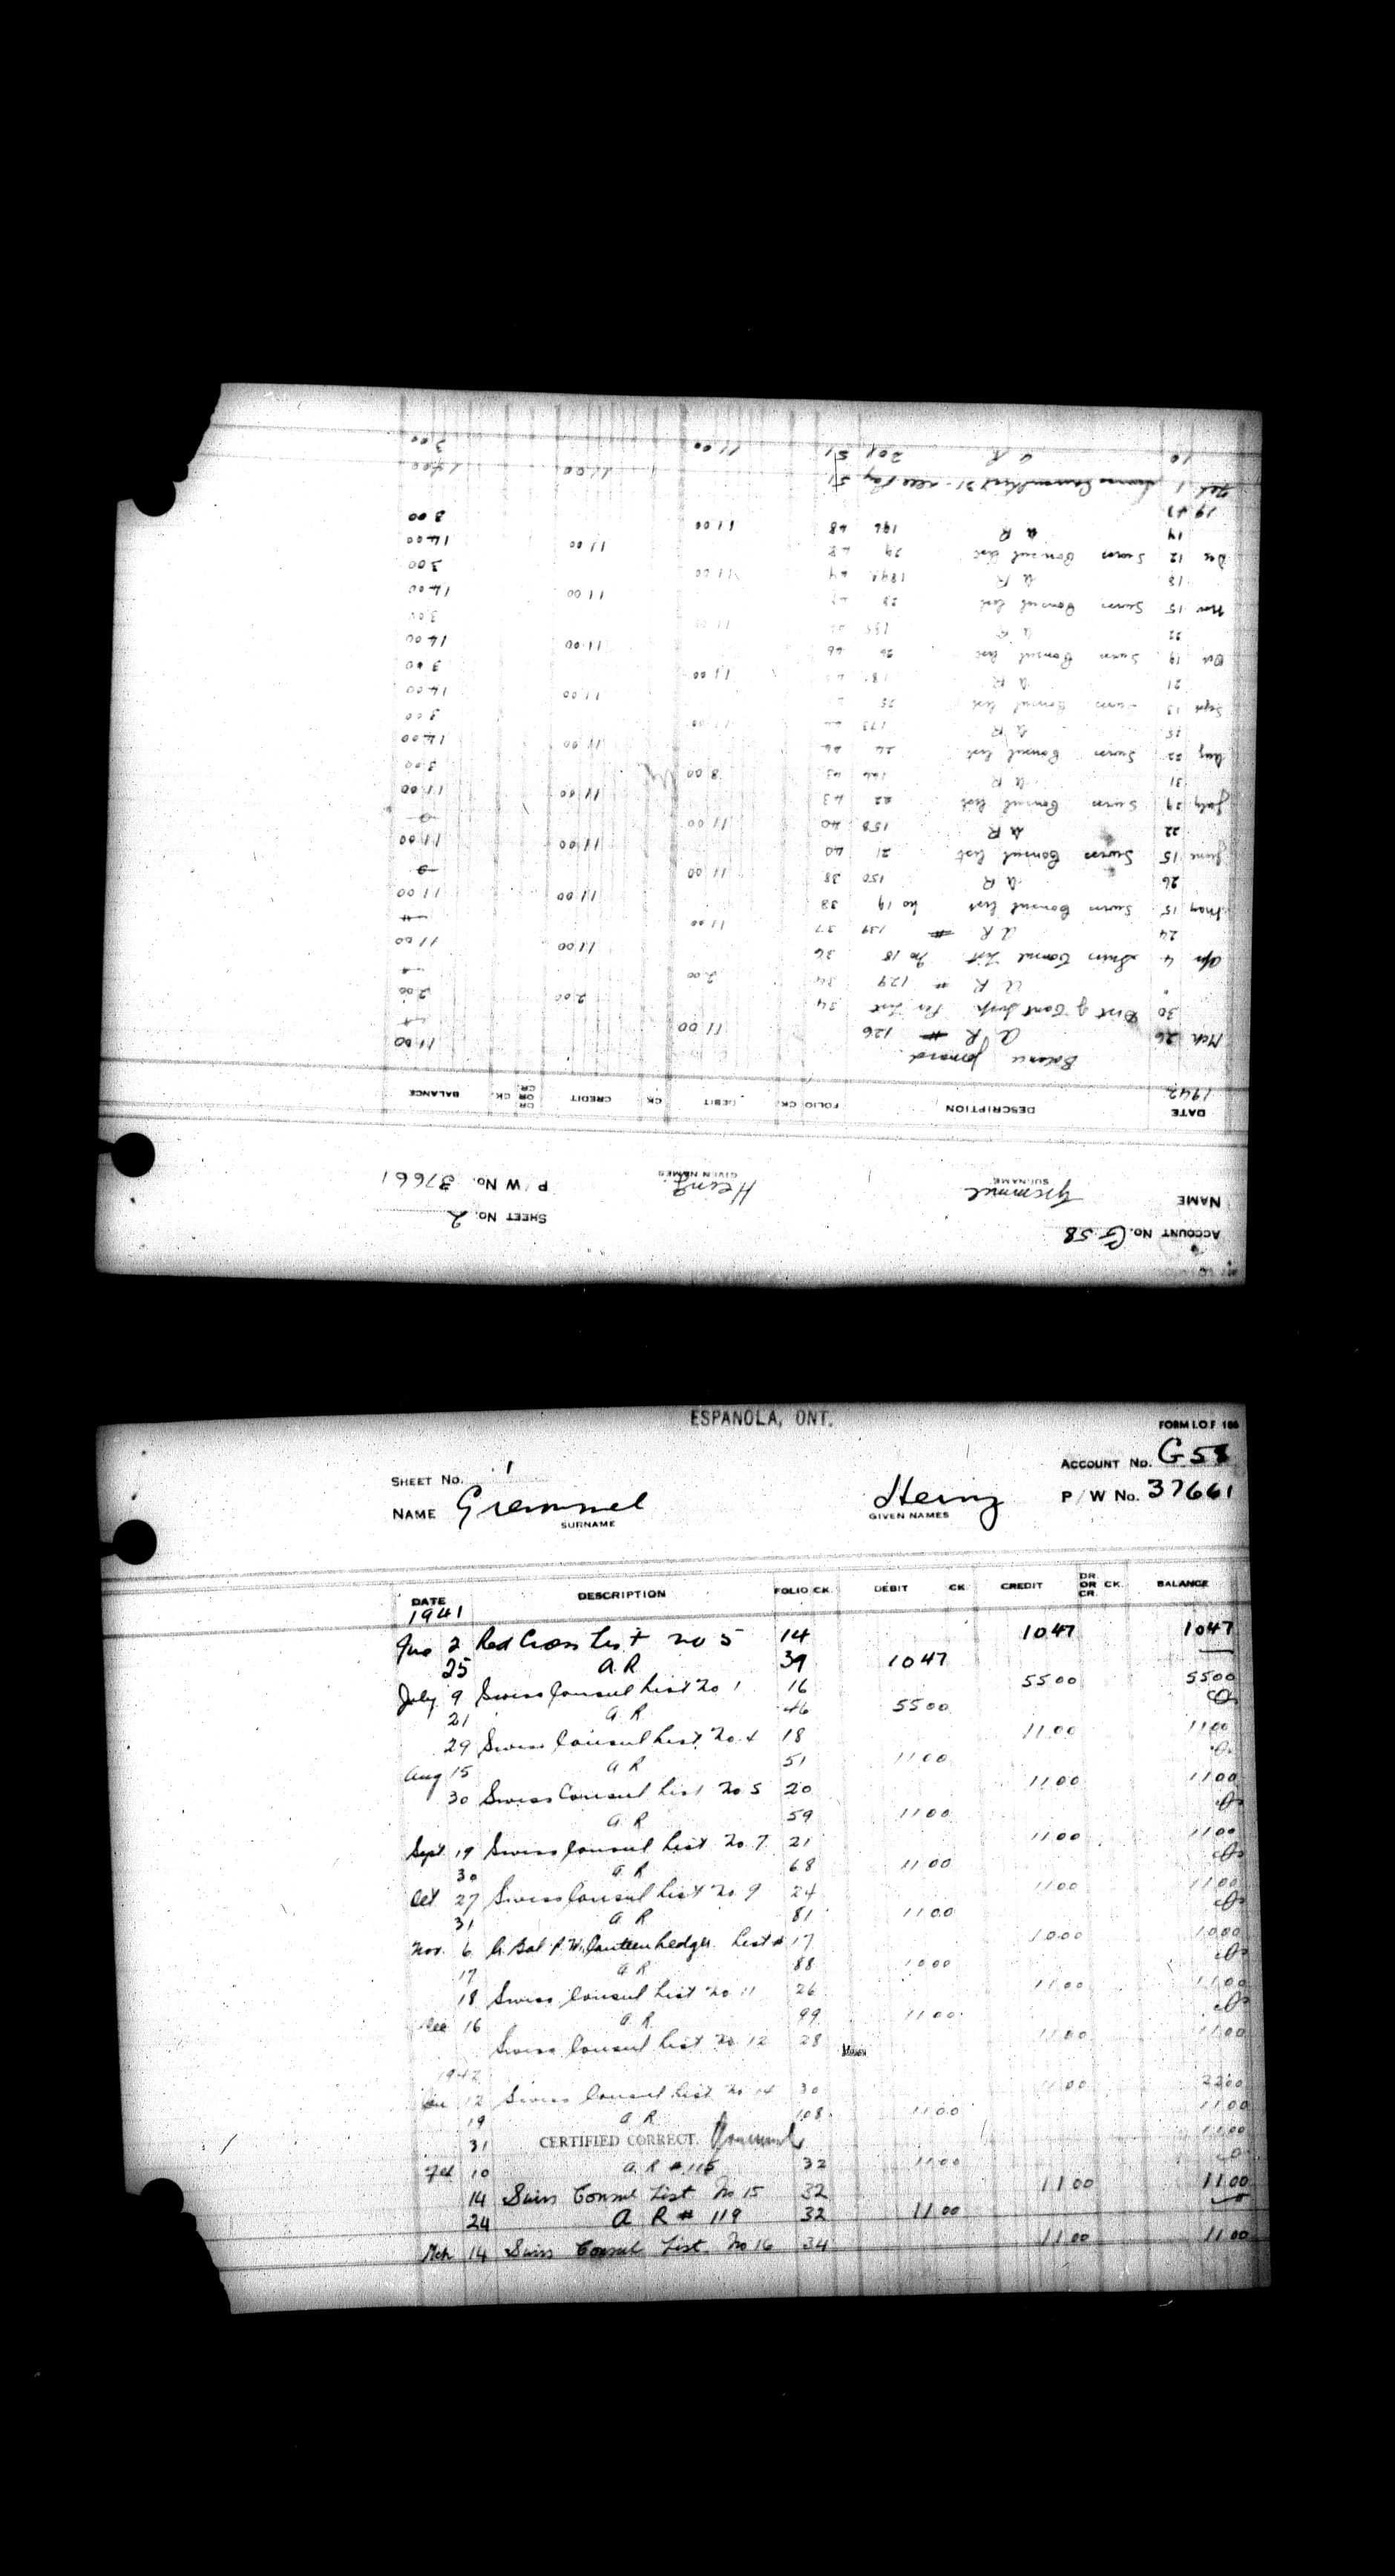 ACCOUNT No. G 58
SHEET No. 2
NAME Gremmel Heinz P/W No. 37661
SURNAME GIVEN NAMES
DATE DESCRIPTION FOLIO CK. DEBIT CK. CREDIT DR. OR CR. CK. BALANCE
1942
Balance forward 11 00
Mch 26 A R # 126 11 00
30 Dist of Cont Per List 34 2 00 2.00
" A R # 129 34 2.00
Apr 4 Swiss Consul List No 18 36 11 00 11 00
24 A R # 139 37 11 00
May 15 Swiss Consul List No 19 38 11 00 11 00
26 A R 150 38 11 00 0
June 15 Swiss Consul List 21 40 11 00 11 00
22 A R 158 40 11 00 0
July 29 Swiss Consul List 22 43 11 00 11 00
31 A R 166 43 8 00 3 00
Aug 22 Swiss Consul List 24 11 00 14 00
25 A R 173 11 00 3 00
Sept 13 Swiss Consul List 25 11 00 14 00
21 A R 11 00 3 00
Oct 19 Swiss Consul List 26 46 11 00 14 00
22 A R 11 00 3 00
Nov 15 Swiss Consul List 28 11 00 14 00
18 A R 11 00 3 00
Dec 12 Swiss Consul List 29 48 11 00 14 00
19 A R 196 48 11 00 3 00
1943
Feb 1 Swiss Consul List 31 Pay 51 11 00 14 00
10 A R 201 51 11 00 3 00
ESPANOLA, ONT.
FORM I.O.F 106
SHEET No. 1 ACCOUNT No. G 58
NAME Gremmel Heinz P/W No. 37661
SURNAME GIVEN NAMES
DATE DESCRIPTION FOLIO CK. DEBIT CK. CREDIT DR. OR CR. CK. BALANCE
1941
2 Red Cross List no 5 14 10 47 10 47
25 A.R 39 10 47
July 9 Swiss Consul List No 1 16 55 00 55 00
21 A. R. 46 55 00 0
29 Swiss Consul List No. 4 18 11 00 11 00
Aug 15 A R 51 11 00 0
30 Swiss Consul List No 5 20 11 00 11 00
A R 59 11 00 0
Sept 19 Swiss Consul List No. 7 21 11 00 11 00
30 A. R 68 11 00 0
Oct 27 Swiss Consul List No 9 24 11 00 11 00
31 A. R 81 11 00 0
Nov. 6 Bal P.W. Canteen Ledger List 17 10 00 10 00
17 A R 88 10 00 0
18 Swiss Consul List No 11 26 11 00 11 00
Dec 16 A. R 99 11 00 0
Swiss Consul List No. 12 28 11 00 11 00
1942
Jan 12 Swiss Consul List No 14 30 11 00 22 00
19 A R 108 11 00 11 00
31 CERTIFIED CORRECT. Gremmel 11 00
Feb 10 A. R # 115 32 11 00 0
14 Swiss Consul List No 15 32 11 00 11 00
24 A R # 119 32 11 00
Mch 14 Swiss Consul List No 16 34 11 00 11 00